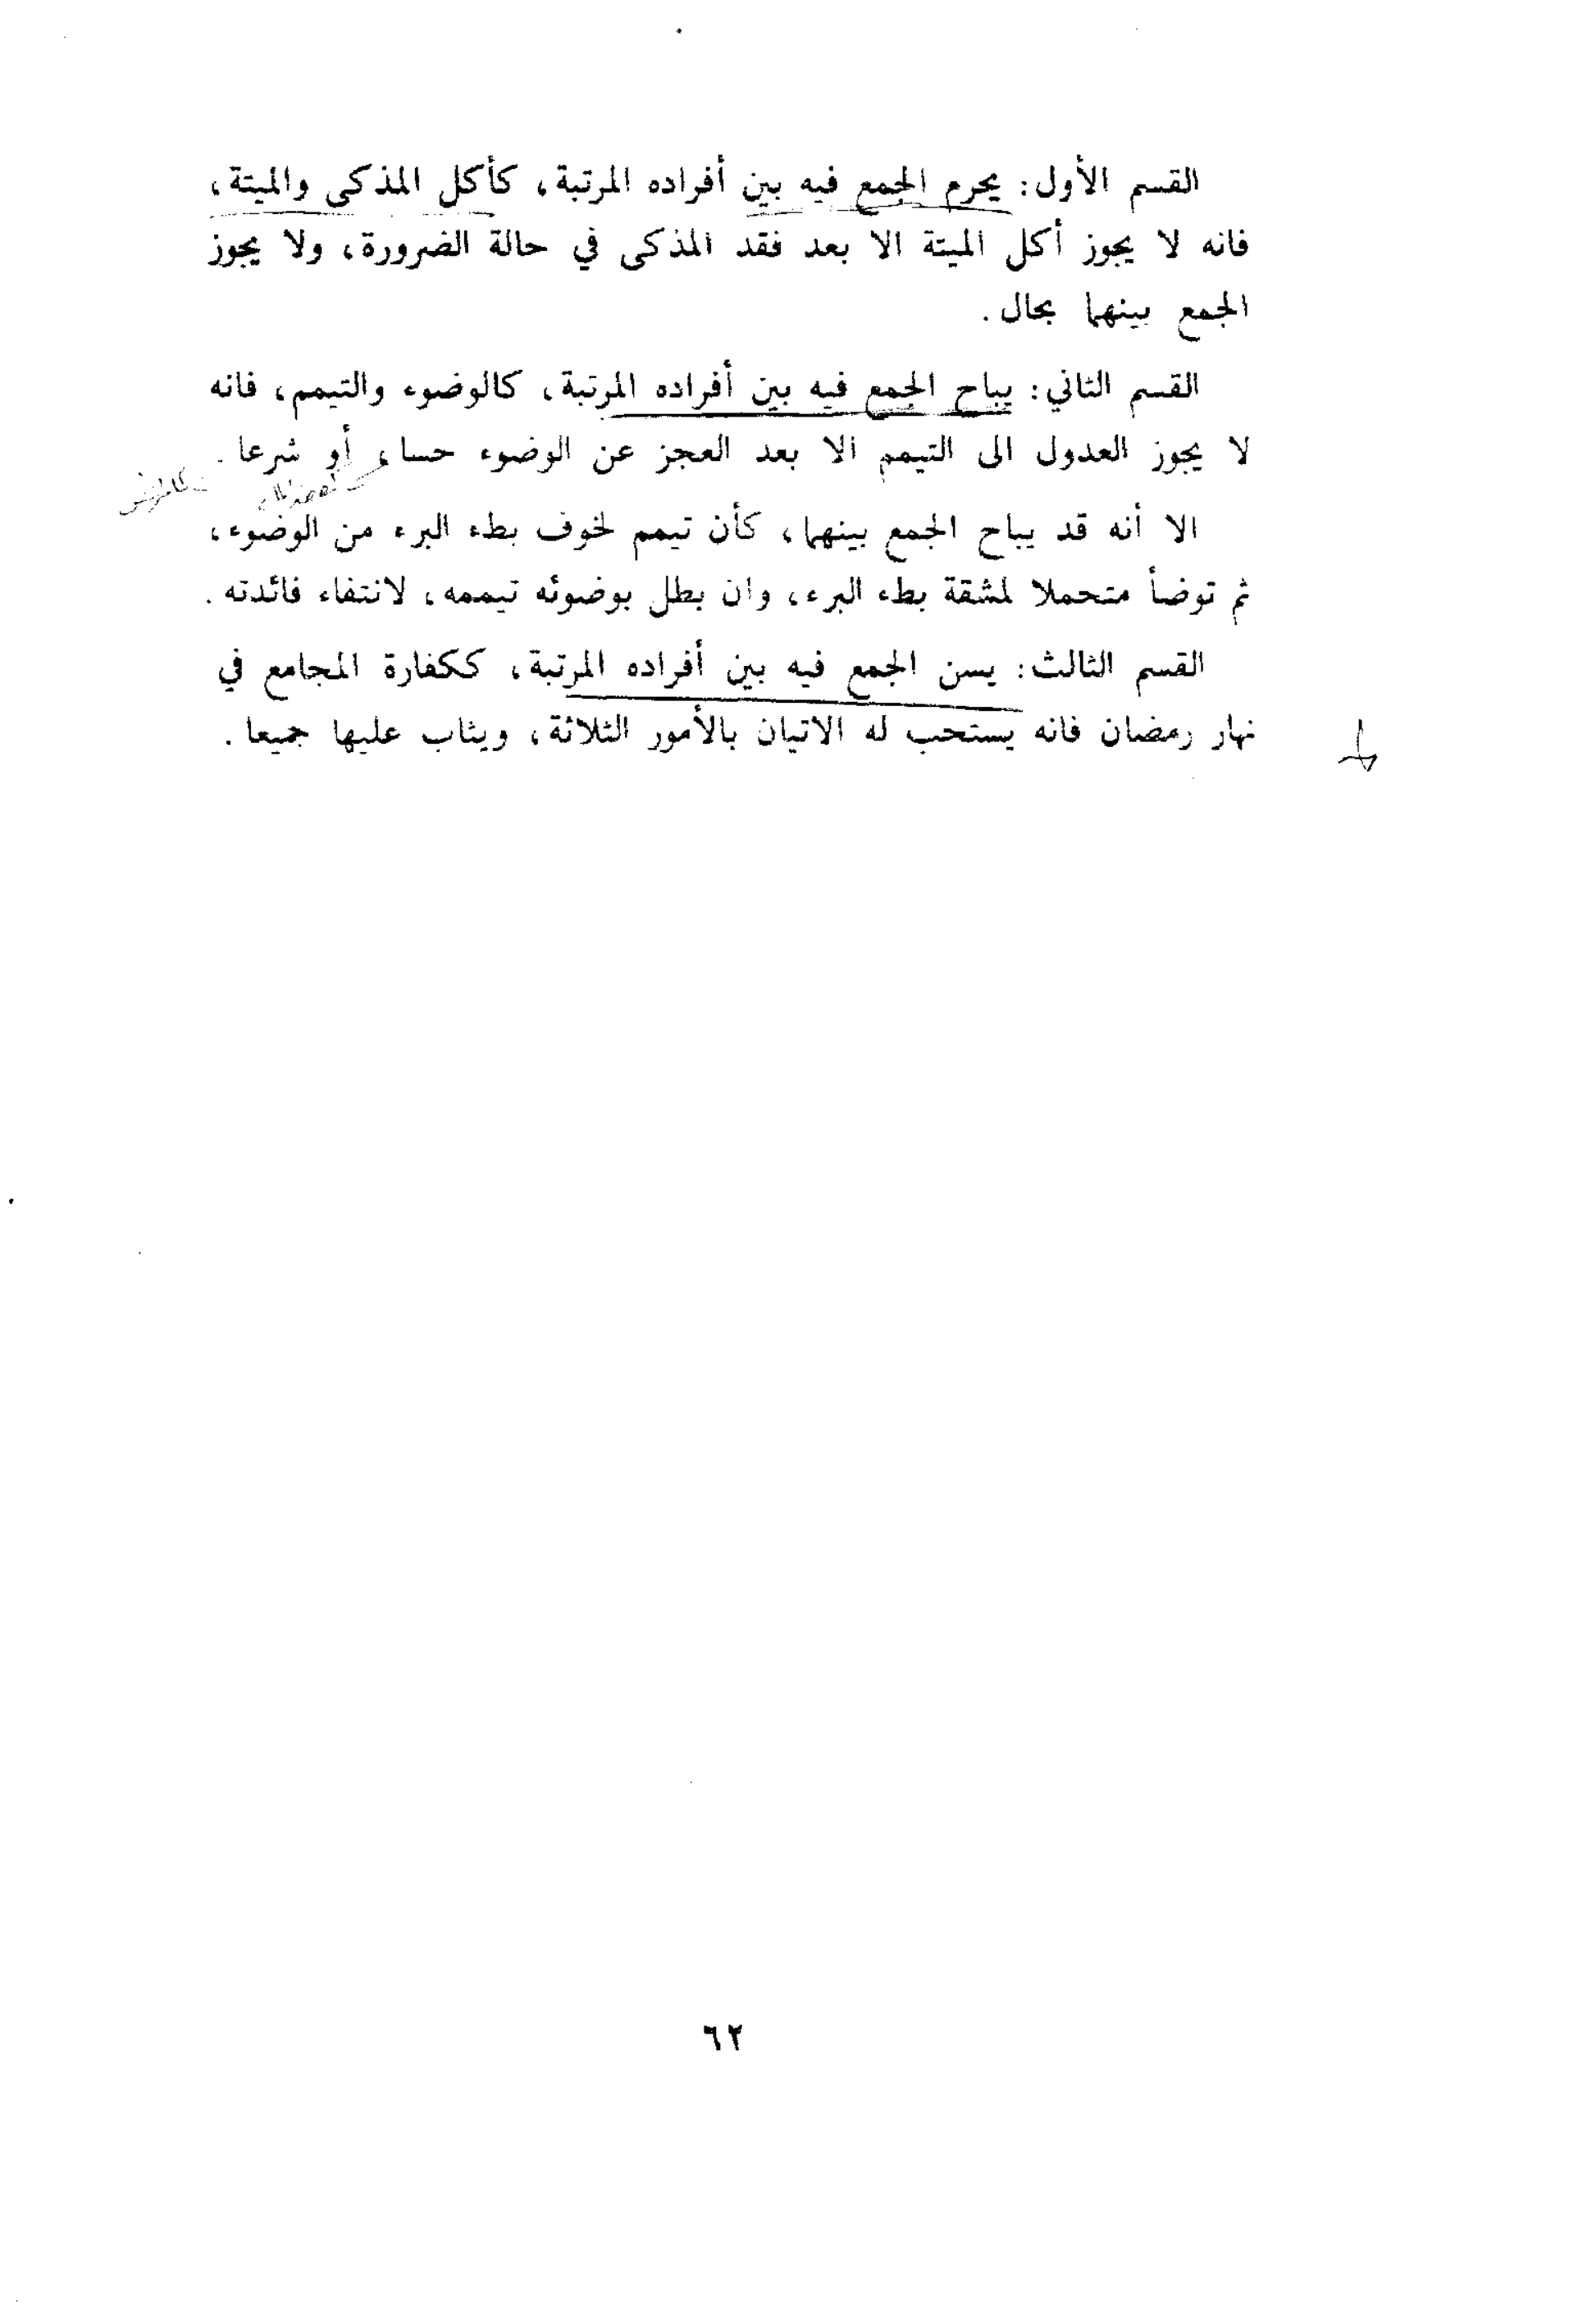 القسم الأول: يحرم الجمع فيه بين أفراده المرتبة، كأكل المذكى والميتة،
فانه لا يجوز أكل الميتة الا بعد فقد المذكى في حالة الضرورة، ولا يجوز
الجمع بينهما بحال.
القسم الثاني: يباح الجمع فيه بين أفراده المرتبة، كالوضوء والتيمم، فانه
لا يجوز العدول الى التيمم الا بعد العجز عن الوضوء حسا، أو شرعا.
الا أنه قد يباح الجمع بينهما، كأن تيمم لخوف بطء البرء من الوضوء،
ثم توضأ متحملا لمشقة بطء البرء، وان بطل بوضوئه تيممه، لانتفاء فائدته.
القسم الثالث: يسن الجمع فيه بين أفراده المرتبة، ككفارة المجامع في
نهار رمضان فانه يستحب له الاتيان بالأمور الثلاثة، ويثاب عليها جميعا.
٦٢